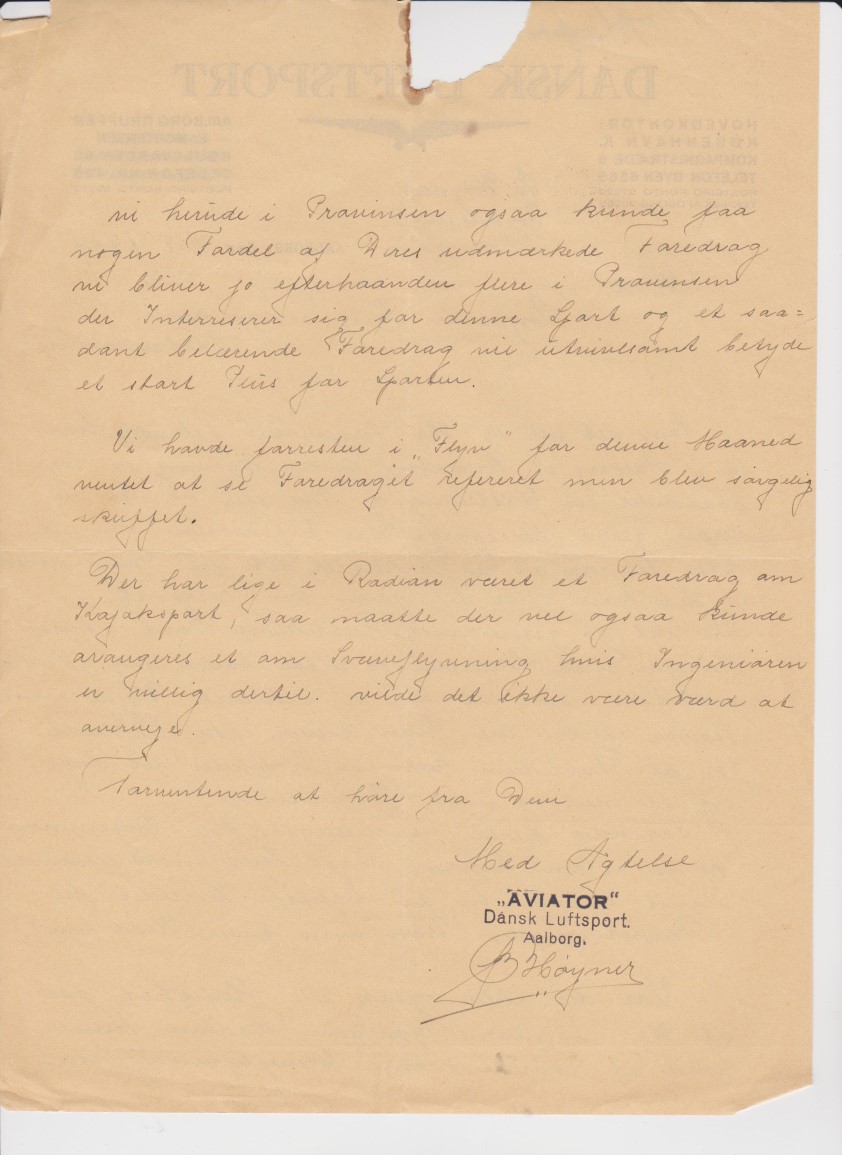 vi herude i Provinsen ogsaa kunde faa
nogen Fordel af Deres udmærkede Foredrag
vi bliver jo efterhaanden flere i Provinsen
der Interreserer sig for denne Sport og et saa=
dant belærende Foredrag vil utvivlsomt betyde
et stort Plus for Sporten.
Vi havde forresten i „Flyv" for denne Maaned
ventet at se Foredraget refereret men blev sørgelig
skuffet.
Der har lige i Radion været et Foredrag om
Kajaksport, saa maatte der vel ogsaa kunde
arangeres et om Svæveflyvning hvis Ingeniøren
er villig dertil. vilde det ikke være værd at
overveje.
Forventende at høre fra Dem
Med Agtelse
„AVIATOR"
Dansk Luftsport.
Aalborg.
Høyner